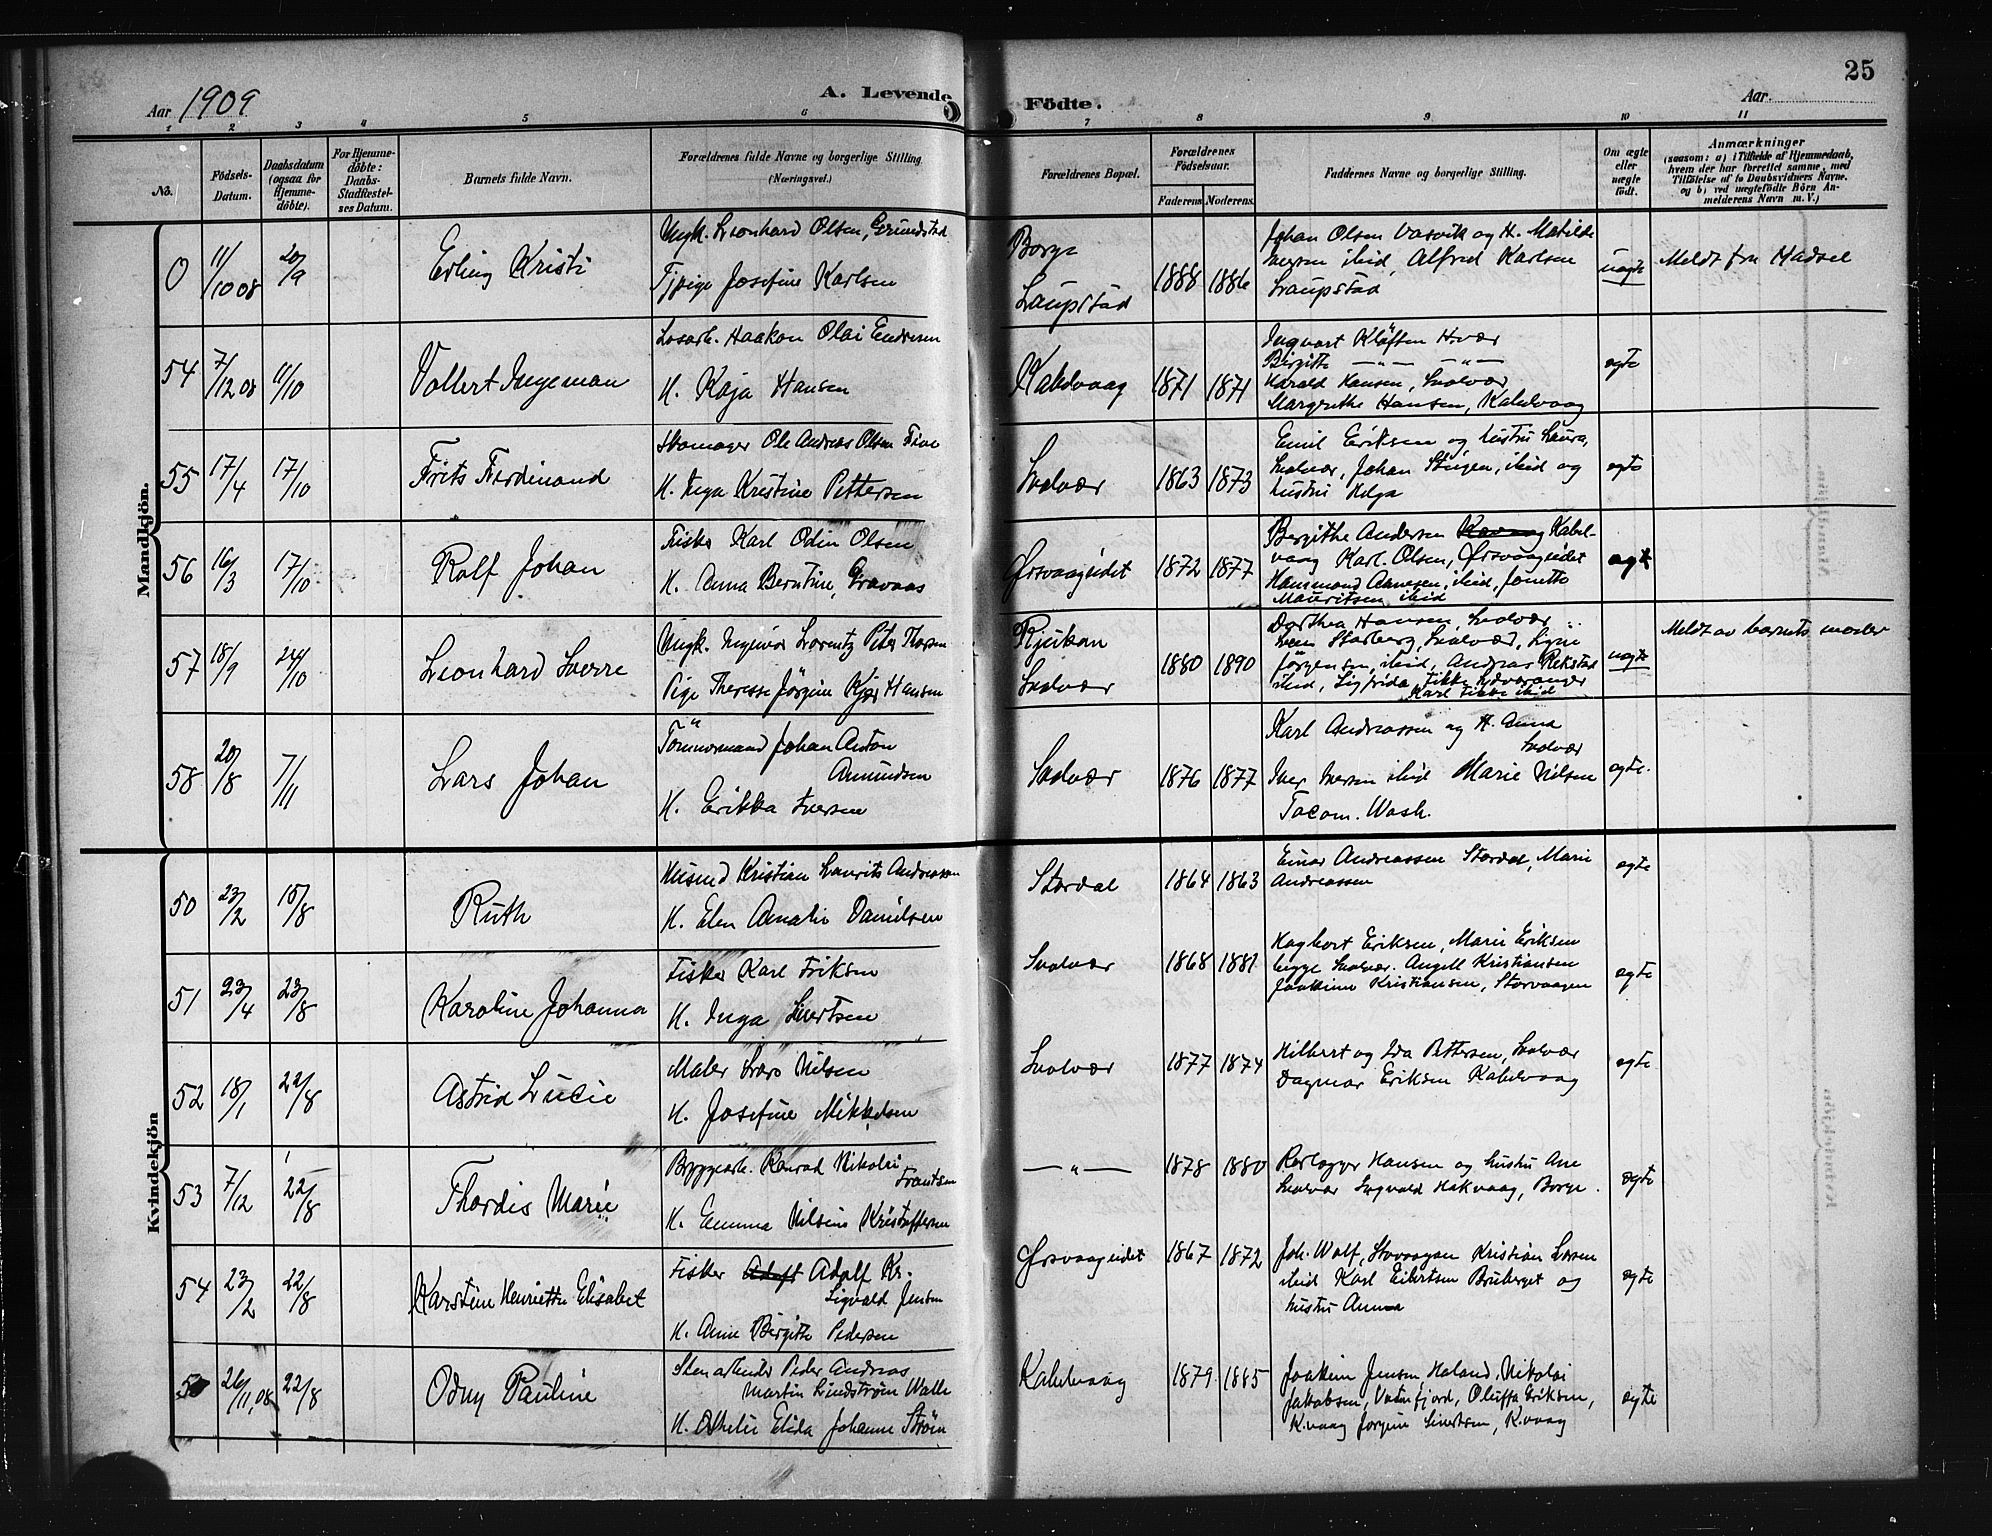 25
Aar 1909
A. Levende Födte.
Aar.
1 2 3 4 5 6 7 8 9 10 11
No.
Födsels-
Datum.
Daabsdatum
(ogsaa for
Hjemme-
döbte).
For Hjemme-
döbte:
Daabs-
Stadfæstel-
ses Datum.
Barnets fulde Navn.
Forældrenes fulde Navne og borgerlige Stilling.
(Næringsvei.)
Forældrenes Bopæl.
Forældrenes
Födselsaar.
Faderens Moderens.
Faddernes Navne og borgerlige Stilling.
Om ægte
eller
uægte
födt.
Anmærkninger
(saasom: a) i Tilfælde af Hjemmedaab,
hvem der har forrettet samme, med
Tilföielse af to Daabsvidners Navne.
og b) ved uægtefödte Börn An-
melderens Navn m. V.)
Mandkjön.
0
11/10 08
20/9
Erling Kristi
Ungk. Leonhard Olsen, Grundstad
Tjpige Josefine Karlsen
Borge
Laupstad
1888 1886
Johan Olsen Vasvik og H. Matilde
Iversen ibid, Alfred Karlsen
Laupstad
uægte
Meldt fra Hadsel
54
7/12 08
11/10
Vollert Ingeman
Losarb. Haakon Olai Endresen
H. Kaja Hansen
Kabelvaag
1871 1871
Ingvart Kläften H.vær
Birgitte —"— —"—
Harald Hansen, Svolvær
Margrethe Hansen, Kabelvaag
egte
55
17/4
17/10
Frits Ferdinand
Skomager Ole Andreas Olsen Five
H. Inga Kristine Pettersen
Svolvær
1863 1873
Emil Eriksen og hustru Laura,
Svolvær, Johan Steigen, ibid og
hustru Helga
egte
56
16/3
17/10
Rolf Johan
Fisker Karl Odin Olsen
H. Anna Berntine, Gravaas
Ørsvaageidet
1872 1877
Bergithe Andersen Kabel-
vaag Karl Olsen, Ørsvaageidet
Hansmand Aanesen, ibid, Jonette
Mauritsen ibid
egte
57
18/9
24/10
Leonhard Sverre
Ungk. Ingeniør Lorentz Peter Thorsen
Pige Therese Jörgine Kjer Hansen
Rjukan
Svolvær
1880 1890
Dorthea Hansen, Svolvær
Svolvær, Signe
Jörgensen, ibid, Andreas Rekstad
ibid, Sigfrida
Karl ibid
uegte
Meldt av barnets moder
58
20/8
7/11
Lars Johan
Tömmermand Johan Anton
Amundsen
H. Erikka Iversen
Svolvær
1876 1877
Karl Andreassen og H. Anna
Svolvær
Iver Iversen ibid Marie Nilsen
Tacom. Wash.
egte.
Kvindekjön
50
23/2
15/8
Ruth
Husmd Kristian Laurits Andreassen
H. Elen Amalie Danielsen
Stordal
1864 1863
Einar Andreassen Stordal, Marie
Andreassen
egte
51
23/4
23/8
Karoline Johanna
Fisker Karl Eriksen
H. Inga Sivertsen
Svolvær
1868 1881
Hagbart Eriksen, Marie Eriksen
begge Svolvær. Angell Kristiansen
Joakime Kristiansen, Storvaagen
egte
52
18/1
22/8
Astrid Lucie
Maler Lars Nilsen
H. Josefine Mikkelsen
Svolvær
1877 1874
Hilbert og Ida Pettersen, Svolvær
Dagmar Eriksen Kabelvaag
egte
53
7/12
22/8
Thordis Marie
Bryggearb. Konrad Nikolai
Frantsen
H. Emma Nilsine Kristoffersen
—"—
1878 1880
Hansen og hustru Ane
Svolvær Ingvald Hakvaag, Borge.
egte
54
23/2
22/8
Karstine Henriette Elisabet
Fisker Adolf Kr.
Sigvald Jensen
H. Anne Birgitte Pedersen
Ørsvaageidet
1867 1872
Joh. Wolf, Storvaagan Kristian Larsen
ibid Karl Eibertsen Bruberget og
hustru Anna
egte
26/11,08
22/8
Odny Pauline
Stenarbeider Peder Andreas
Martin Lindström Walle
H. Othelie Elida Johanne Ström
Kabelvaag
1879 1885
Joakim Jensen Holand, Nikolai
Jakobsen, Vaterfjord, Oluffa Eriksen,
K.vaag Jorgine Sivertsen, K.vaag
egte